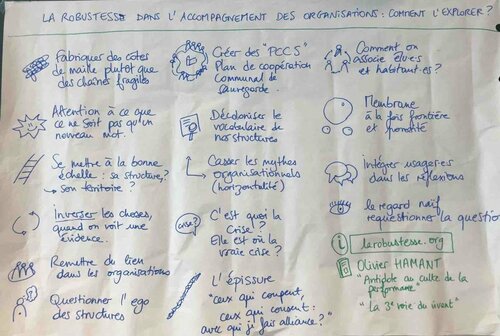 LA ROBUSTESSE DANS L'ACCOMPAGNEMENT DES ORGANISATIONS : COMMENT L'EXPLORER ?
Fabriquer des côtes
de maille plutôt que
des chaînes fragiles
Attention à ce que
ce ne soit pas qu'un
nouveau mot.
Se mettre à la bonne
échelle : sa structure ?
son territoire ?
Inverser les choses,
quand on voit une
évidence.
Remettre du lien
dans les organisations
Questionner l'ego
des structures
Créer des "PCCS"
Plan de coopération
Communal de
sauvegarde.
Décoloniser le
vocabulaire de
nos structures
Casser les mythes
organisationnels
(horizontalité)
crise?
C'est quoi la
Crise ?
Elle est où la
vraie crise ?
L'épissure
"ceux qui coupent,
ceux qui consent :
avec qui j'fais alliance ?"
Comment on
associe élu·es
et habitant·es ?
Membrane
à la fois frontière
et porosité
Intégrer usager·es
dans les réflexions
le regard naïf
requestionner la question
i
larobustesse.org
Olivier HAMANT
"Antidote au culte de la
performance"
"la 3e voie du vivant"